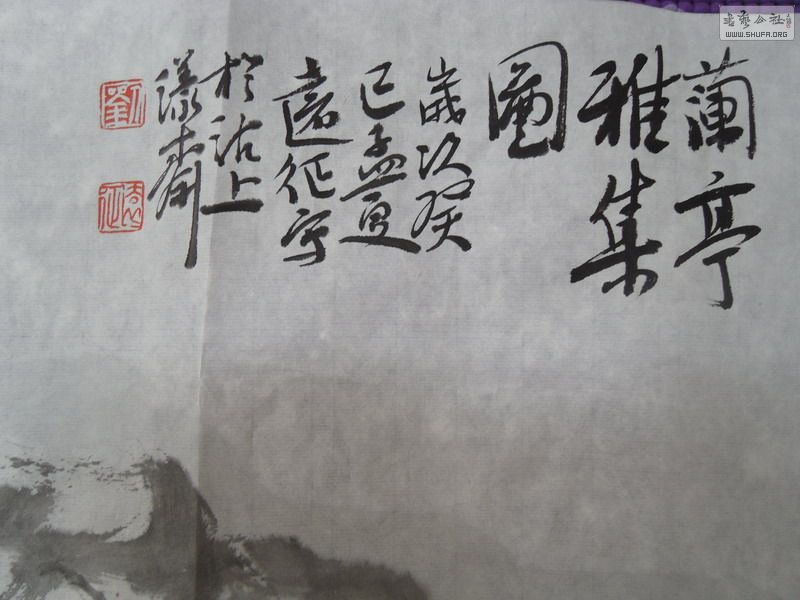 蘭亭
雅集
圖
歲次癸
巳孟夏
遠征寫
於沽上
漾齋
劉
遠征
書藝公社
WWW.SHUFA.ORG